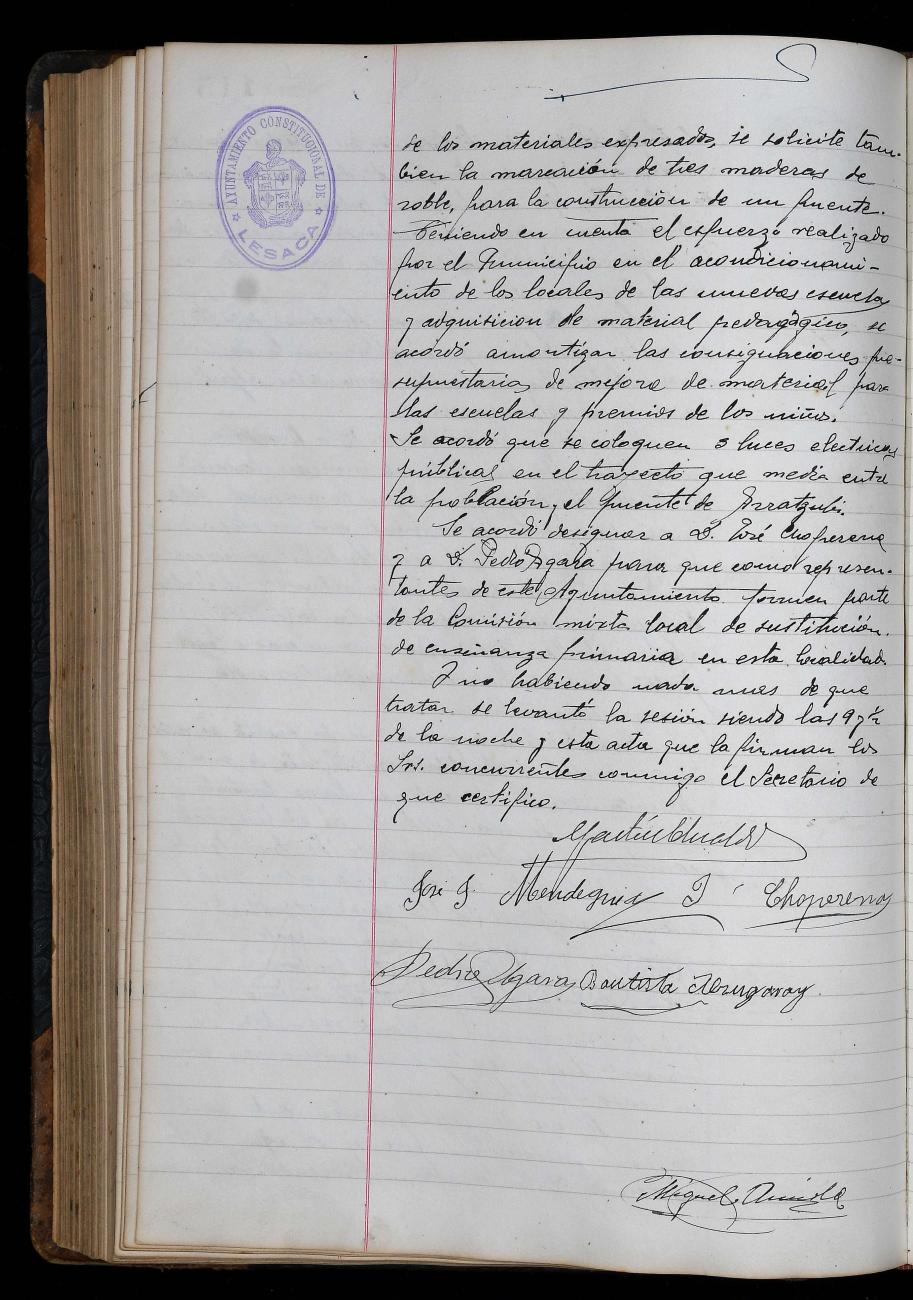 AYUNTAMIENTO CONSTITUCIONAL DE
LESACA
de los materiales expresados, se solicite tam-
bien la marcación de tres maderas de
roble, para la construcción de un puente.
Teniendo en cuenta el esfuerzo realizado
por el Municipio en el acondicionami-
ento de los locales de las nuevas escuelas
y adquisicion de material pedagógico, se
acordó amortizar las consignaciones pre-
supuestarias de mejora de material para
las escuelas y premios de los niños.
Se acordó que se coloquen 3 luces electricas
públicas en el trayecto que media entre
la población y el puente de Irratzubi.
Se acordó designar a D. José Choperena
y a D. Pedro Igara para que como represen-
tantes de este Ayuntamiento formen parte
de la Comisión mixta local de sustitución
de enseñanza primaria en esta localidad.
Y no habiendo nada mas de que
tratar se levantó la sesión siendo las 9 y ½
de la noche y esta acta que la firman los
Srs. concurrentes conmigo el Secretario de
que certifico.
Martín
José J. Mendeguia J Choperena
Pedro Ygara Bautista
Miguel